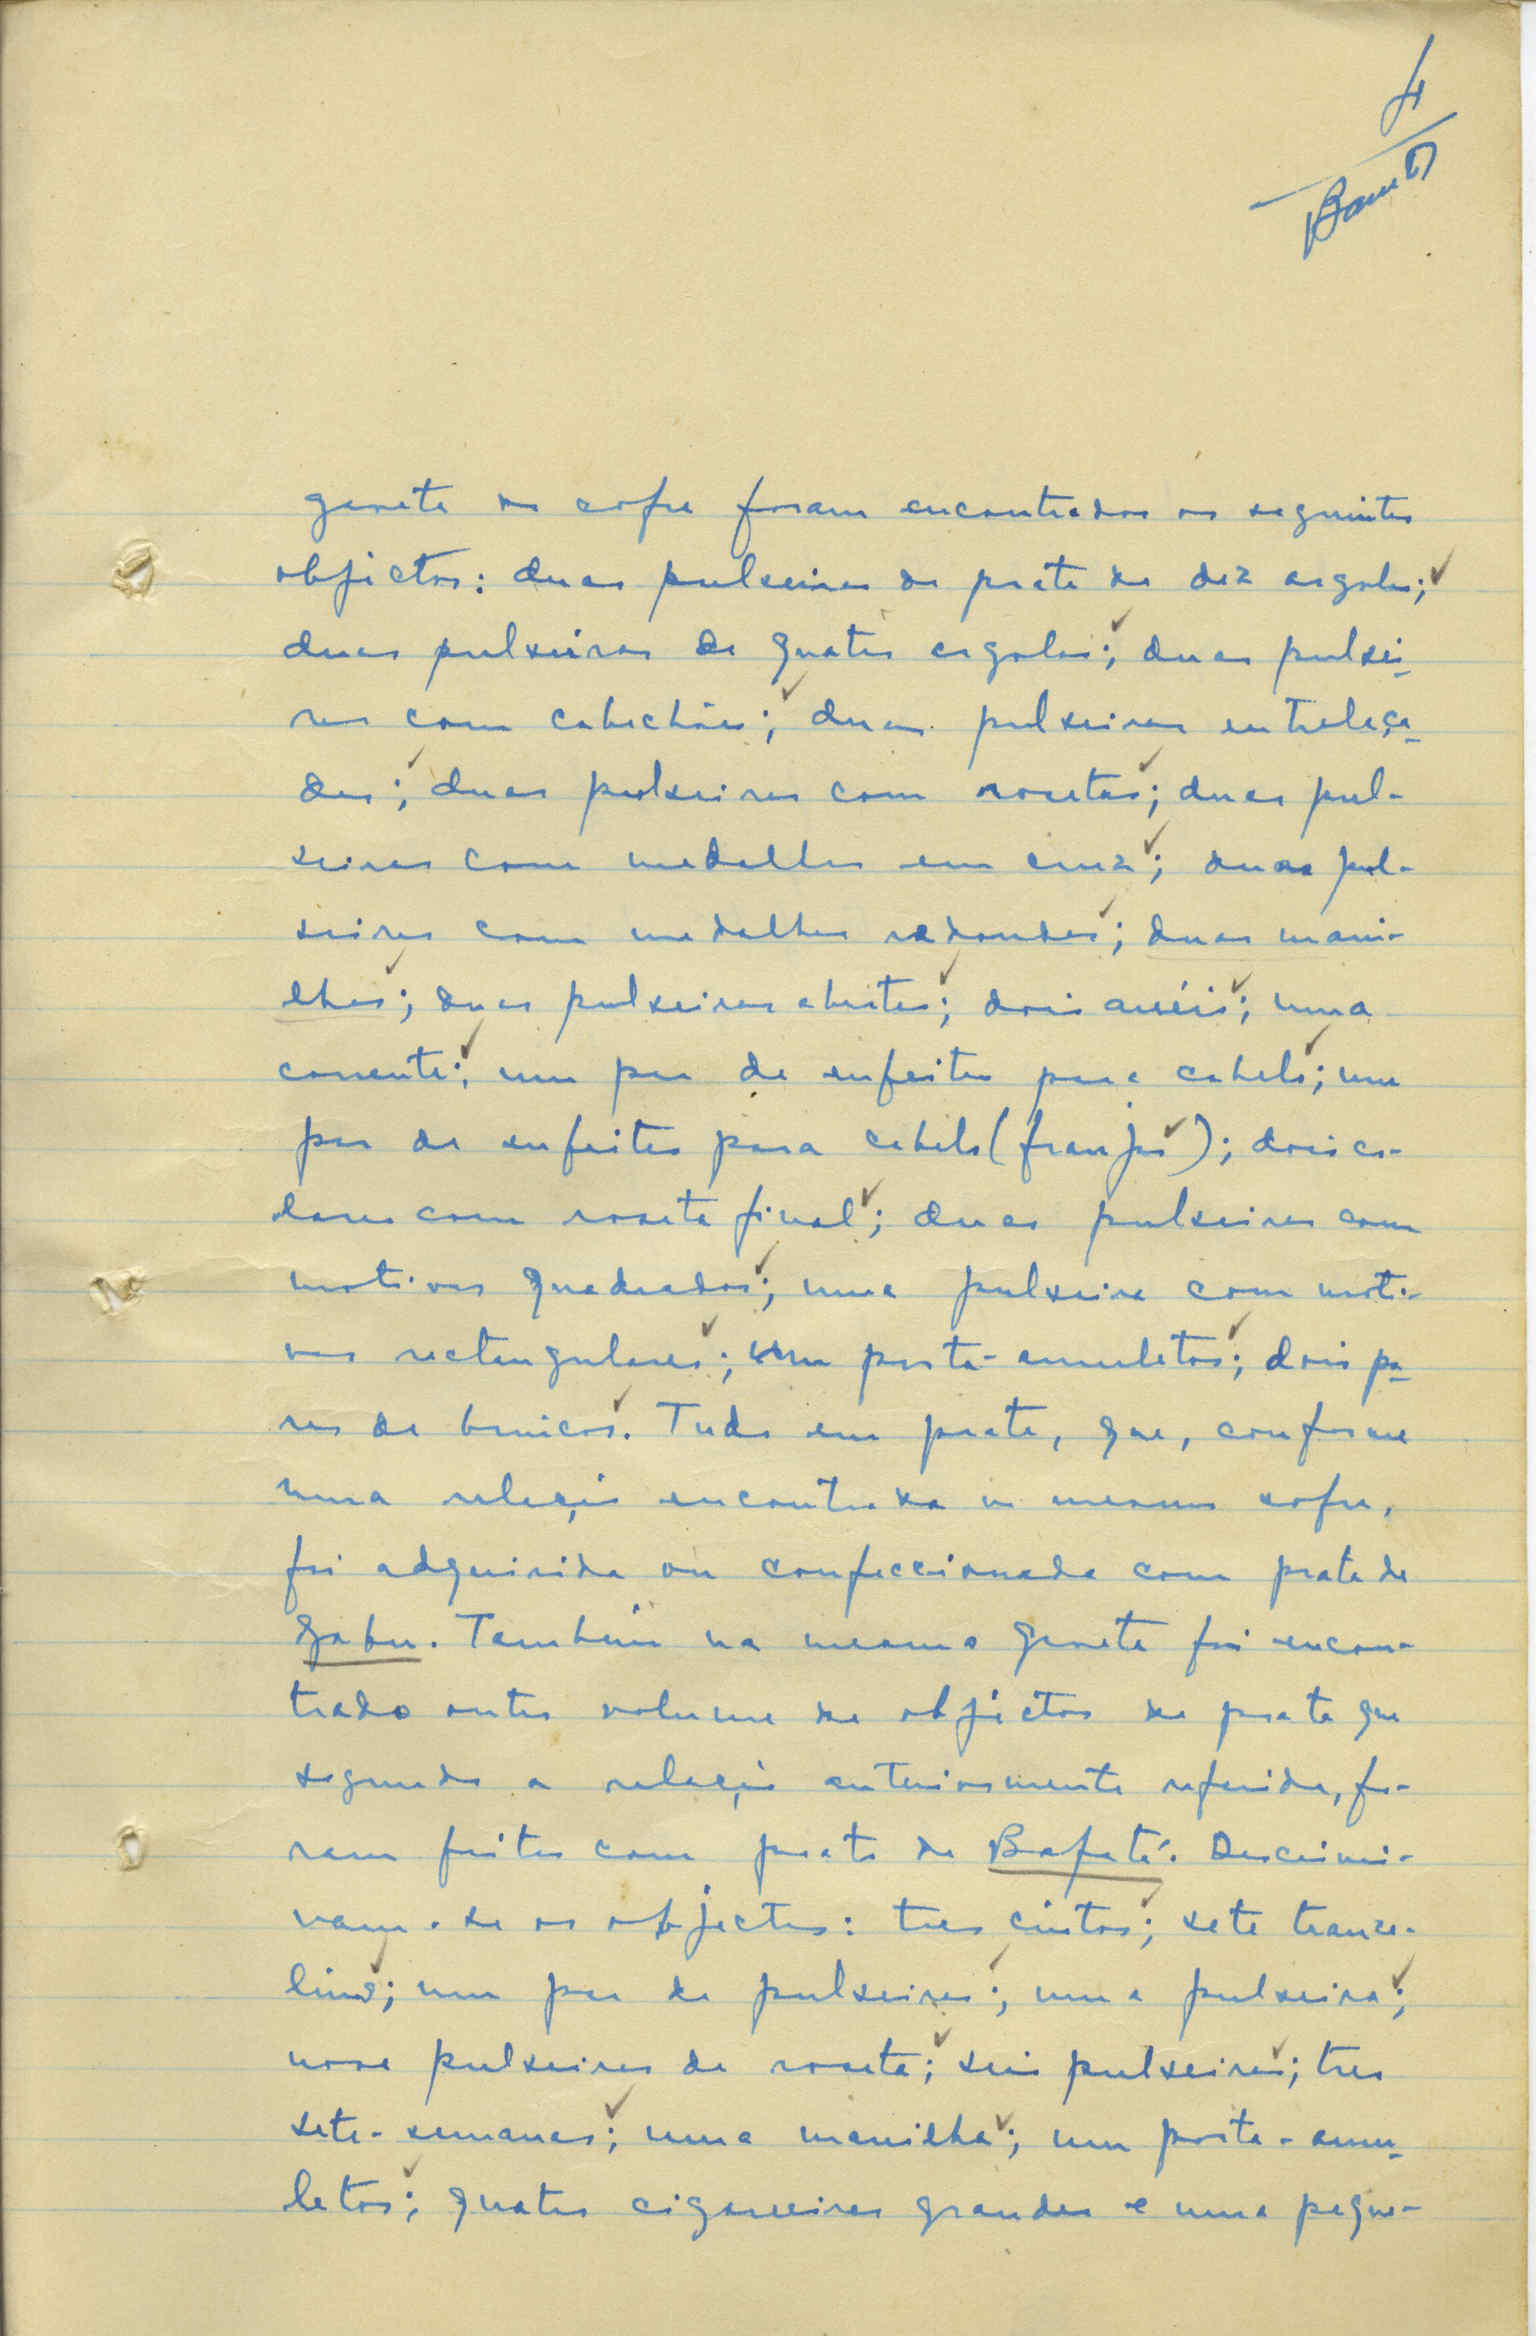 4
gaveta do cofre foram encontrados os seguintes
objectos: duas pulseiras de prata de dez argolas;
duas pulseiras de quatro argolas; duas pulsei-
ras com cabochões; duas pulseiras entrelaça-
das; duas pulseiras com rosetas; duas pul-
seiras com medalhas em cruz; duas pul-
seiras com medalhas redondas; duas mani-
lhas; duas pulseiras abertas; dois anéis; uma
corrente; um par de enfeites para cabelo; um
par de enfeites para cabelo (franjas); dois co-
lares com roseta final; duas pulseiras com
motivos quadrados; uma pulseira com moti-
vos rectangulares; um porta-amuletos; dois pa-
res de brincos. Tudo em prata, que, conforme
uma relação encontrada no mesmo cofre,
foi adquirida ou confeccionada com prata de
Gabu. Também na mesma gaveta foi encon-
trado outro volume de objectos de prata que
segundo a relação anteriormente referida, fo-
ram feitos com prata de Bafatá. Descrimi-
nam-se os objectos: tres cintos; sete trance-
lins; um par de pulseiras; uma pulseira;
nove pulseiras de roseta; seis pulseiras; tres
sete-semanas; uma manilha; um porta-amu-
letos; quatro cigarreiras grandes e uma peque-